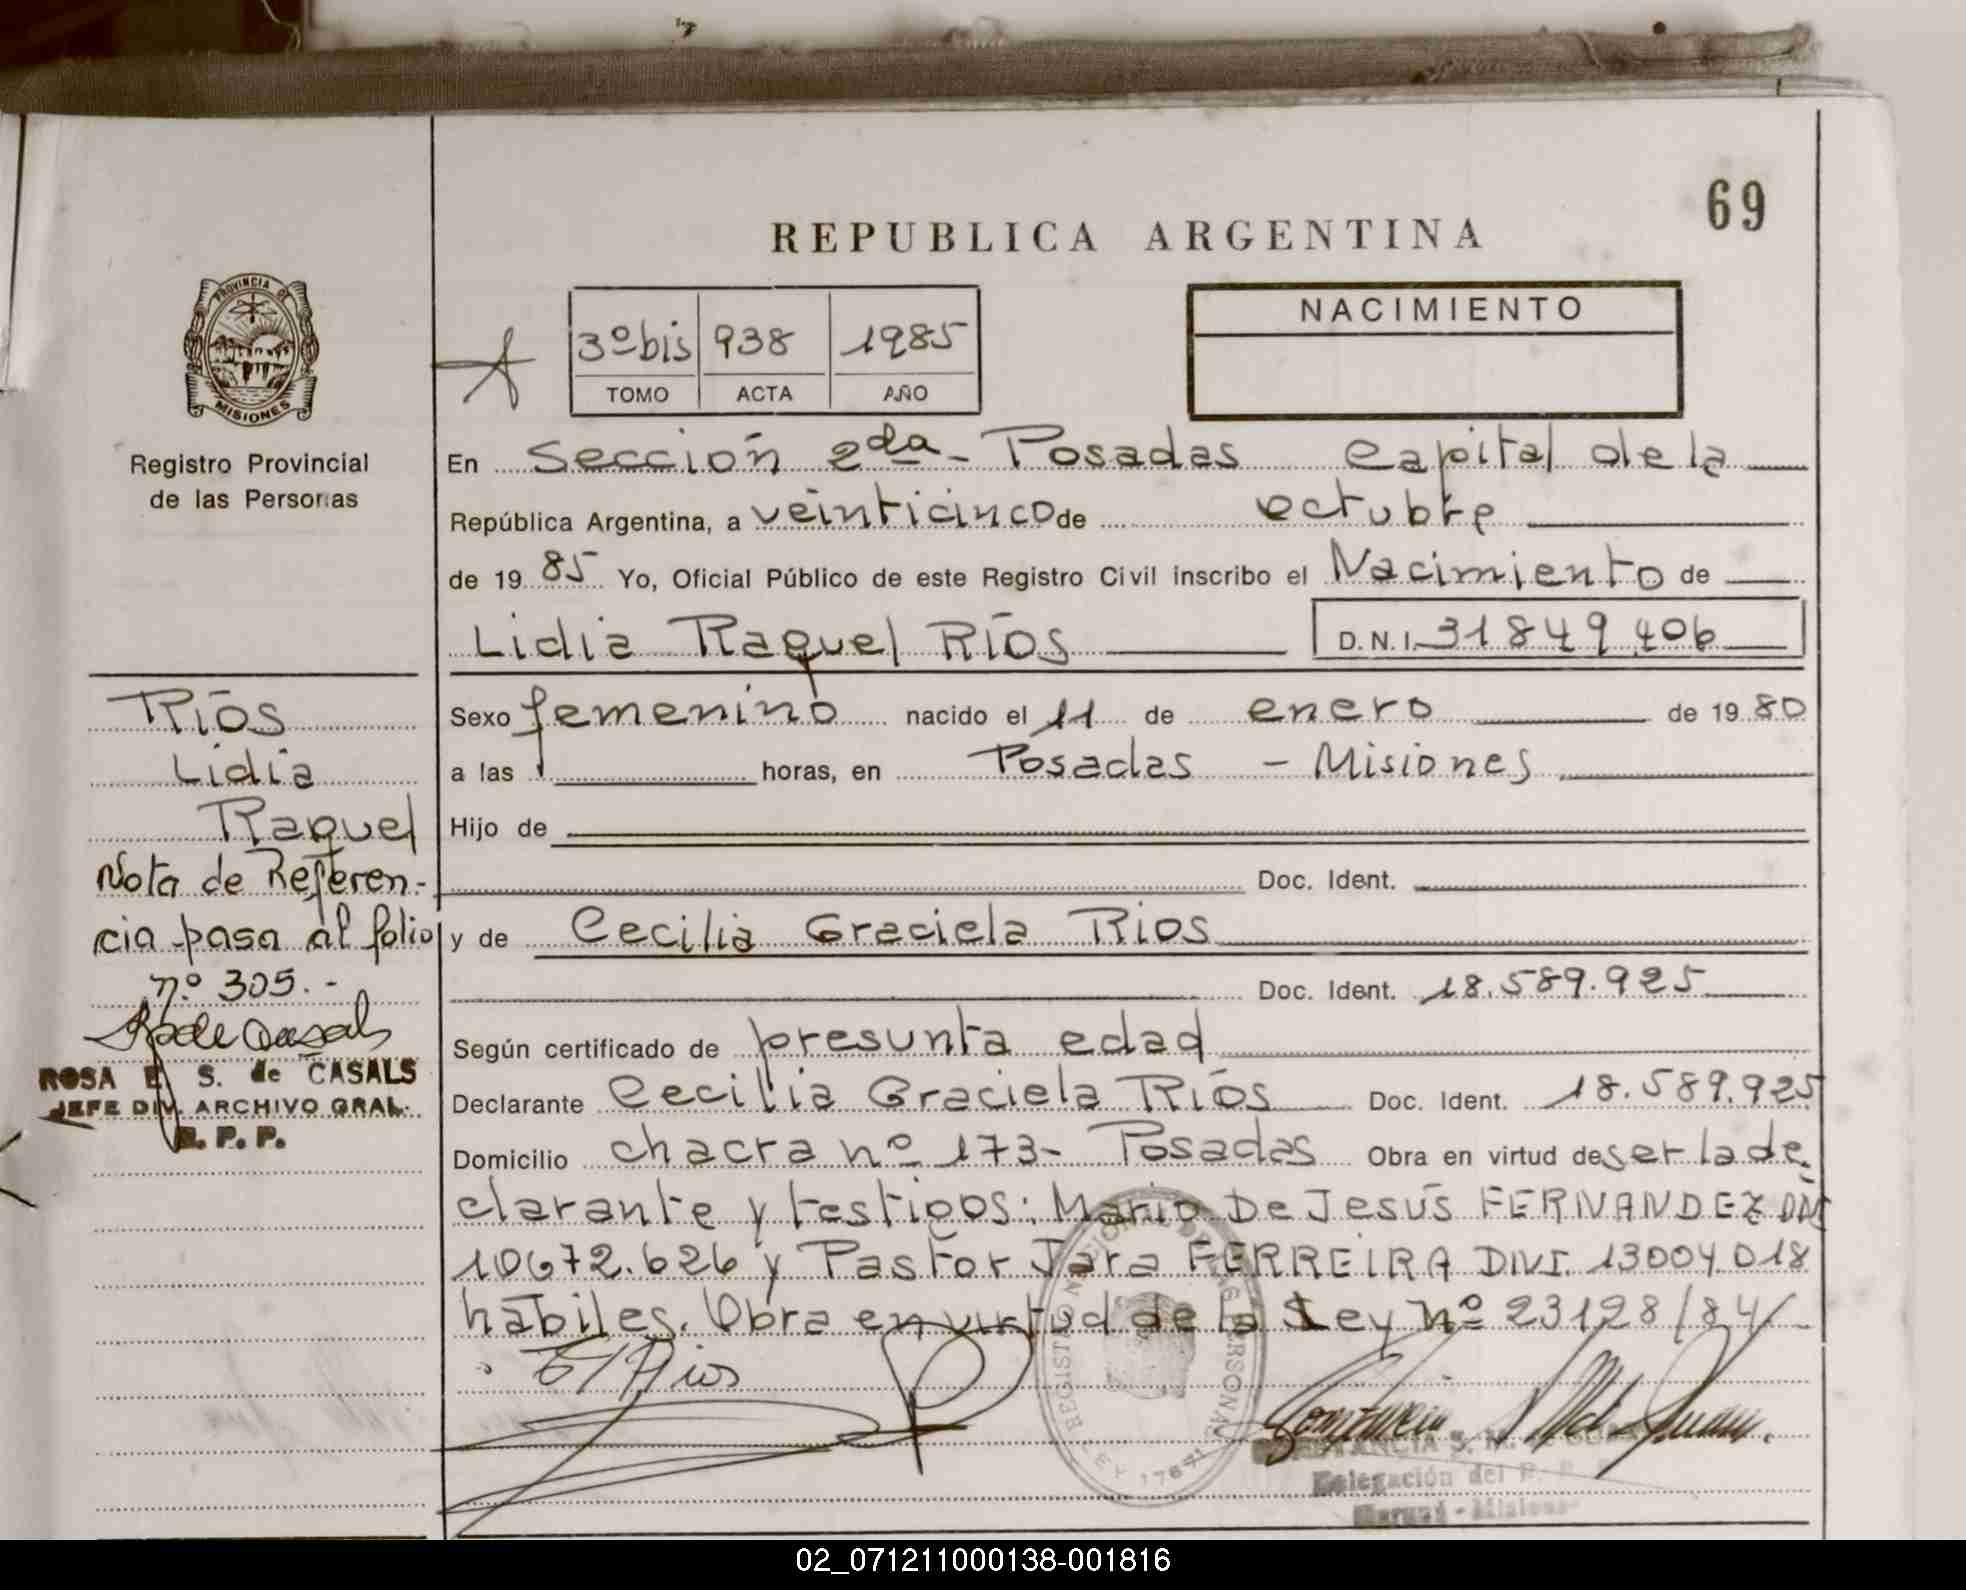 69
REPUBLICA ARGENTINA
PROVINCIA DE
MISIONES
Registro Provincial
de las Personas
3º bis 938 1985
TOMO ACTA AÑO
NACIMIENTO
En Sección 2da - Posadas Capital de la
República Argentina, a veinticinco de octubre
de 1985 Yo, Oficial Público de este Registro Civil inscribo el Nacimiento de
Lidia Raquel Ríos D.N.I. 31849406
Sexo femenino nacido el 11 de enero de 1980
a las horas, en Posadas - Misiones
Hijo de
Doc. Ident.
y de Cecilia Graciela Rios
Doc. Ident. 18.589.925
Según certificado de presunta edad
Declarante Cecilia Graciela Ríos Doc. Ident. 18.589.925
Domicilio chacra nº 173- Posadas Obra en virtud de ser la de
clarante y testigos: Mario De Jesús FERNANDEZ DNI
10672.626 y Pastor Jara FERREIRA DNI. 13004018
hábiles. Obra en virtud de la Ley nº 23128/84
Ríos
Lidia
Raquel
Nota de Referen-
cia pasa al folio
nº 305.-
ROSA E. S. de CASALS
JEFE DIV. ARCHIVO GRAL.
R. P. P.
Rios
Delegación del R. P.
02_071211000138-001816